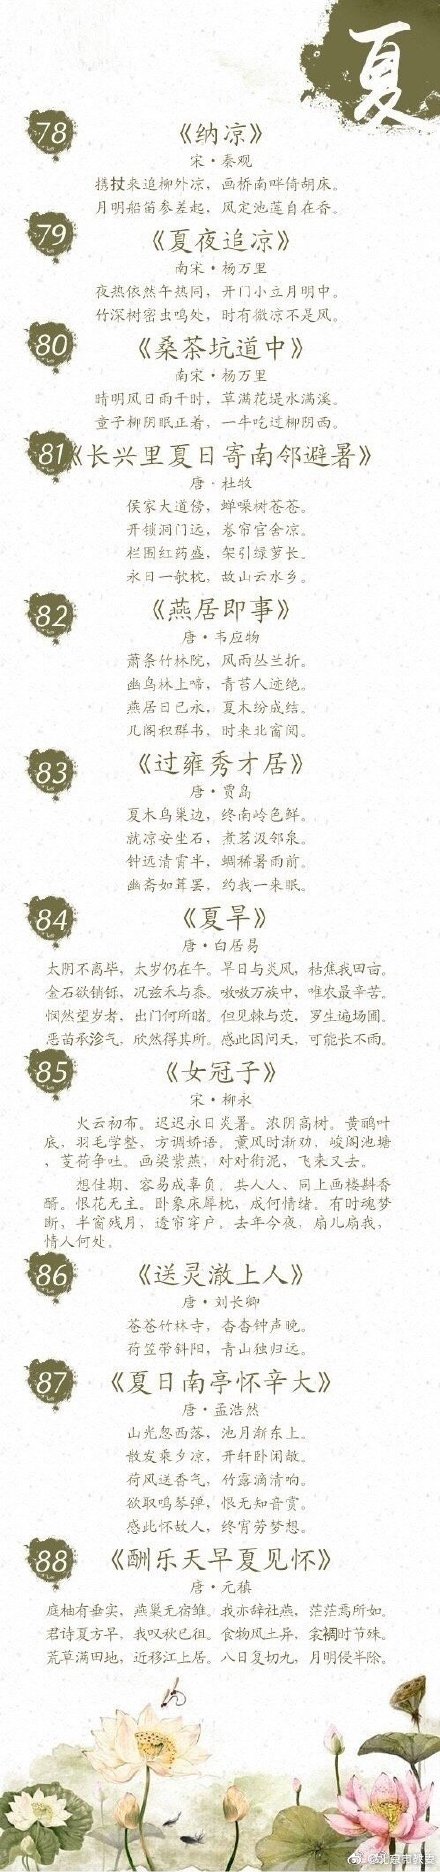 夏
78
《纳凉》
宋·秦观
携扙来追柳外凉，画桥南畔倚胡床。
月明船笛参差起，风定池莲自在香。
79
《夏夜追凉》
南宋·杨万里
夜热依然午热同，开门小立月明中。
竹深树密虫鸣处，时有微凉不是风。
80
《桑茶坑道中》
南宋·杨万里
晴明风日雨干时，草满花堤水满溪。
童子柳阴眠正着，一牛吃过柳阴西。
81
《长兴里夏日寄南邻避暑》
唐·杜牧
侯家大道傍，蝉噪树苍苍。
开锁洞门远，卷帘官舍凉。
栏围红药盛，架引绿萝长。
永日一欹枕，故山云水乡。
82
《燕居即事》
唐·韦应物
萧条竹林院，风雨丛兰折。
幽鸟林上啼，青苔人迹绝。
燕居日已永，夏木纷成结。
几阁积群书，时来北窗阅。
83
《过雍秀才居》
唐·贾岛
夏木鸟巢边，终南岭色鲜。
就凉安坐石，煮茗汲邻泉。
钟远清霄半，蜩稀暑雨前。
幽斋如葺罢，约我一来眠。
84
《夏旱》
唐·白居易
太阴不离毕，太岁仍在午。旱日与炎风，枯焦我田亩。
金石欲销铄，况兹禾与黍。嗷嗷万族中，唯农最辛苦。
悯然望岁者，出门何所睹。但见棘与茨，罗生遍场圃。
恶苗承沴气，欣然得其所。感此因问天，可能长不雨。
85
《女冠子》
宋·柳永
火云初布。迟迟永日炎暑。浓阴高树。黄鹂叶
底，羽毛学整，方调娇语。薰风时渐劝，峻阁池塘
，芰荷争吐。画梁紫燕，对对衔泥，飞来又去。
想佳期、容易成辜负。共人人、同上画楼斟香
醑。恨花无主。卧象床犀枕，成何情绪。有时魂梦
断，半窗残月，透帘穿户。去年今夜，扇儿扇我，
情人何处。
86
《送灵澈上人》
唐·刘长卿
苍苍竹林寺，杳杳钟声晚。
荷笠带斜阳，青山独归远。
87
《夏日南亭怀辛大》
唐·孟浩然
山光忽西落，池月渐东上。
散发乘夕凉，开轩卧闲敞。
荷风送香气，竹露滴清响。
欲取鸣琴弹，恨无知音赏。
感此怀故人，终宵劳梦想。
88
《酬乐天早夏见怀》
唐·元稹
庭柚有垂实，燕巢无宿雏。我亦辞社燕，茫茫焉所如。
君诗夏方早，我叹秋已徂。食物风土异，衾裯时节殊。
荒草满田地，近移江上居。八日复切九，月明侵半除。